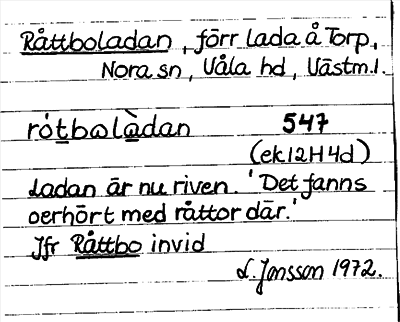 Råttboladan, förr lada å Torp,
Nora sn, Våla hd, Västm.l.
ró̱tbɷlà̱dan 547
(ek12H4d)
Ladan är nu riven. 'Det fanns
oerhört med råttor där.'
Jfr Råttbo invid
L. Jonsson 1972.